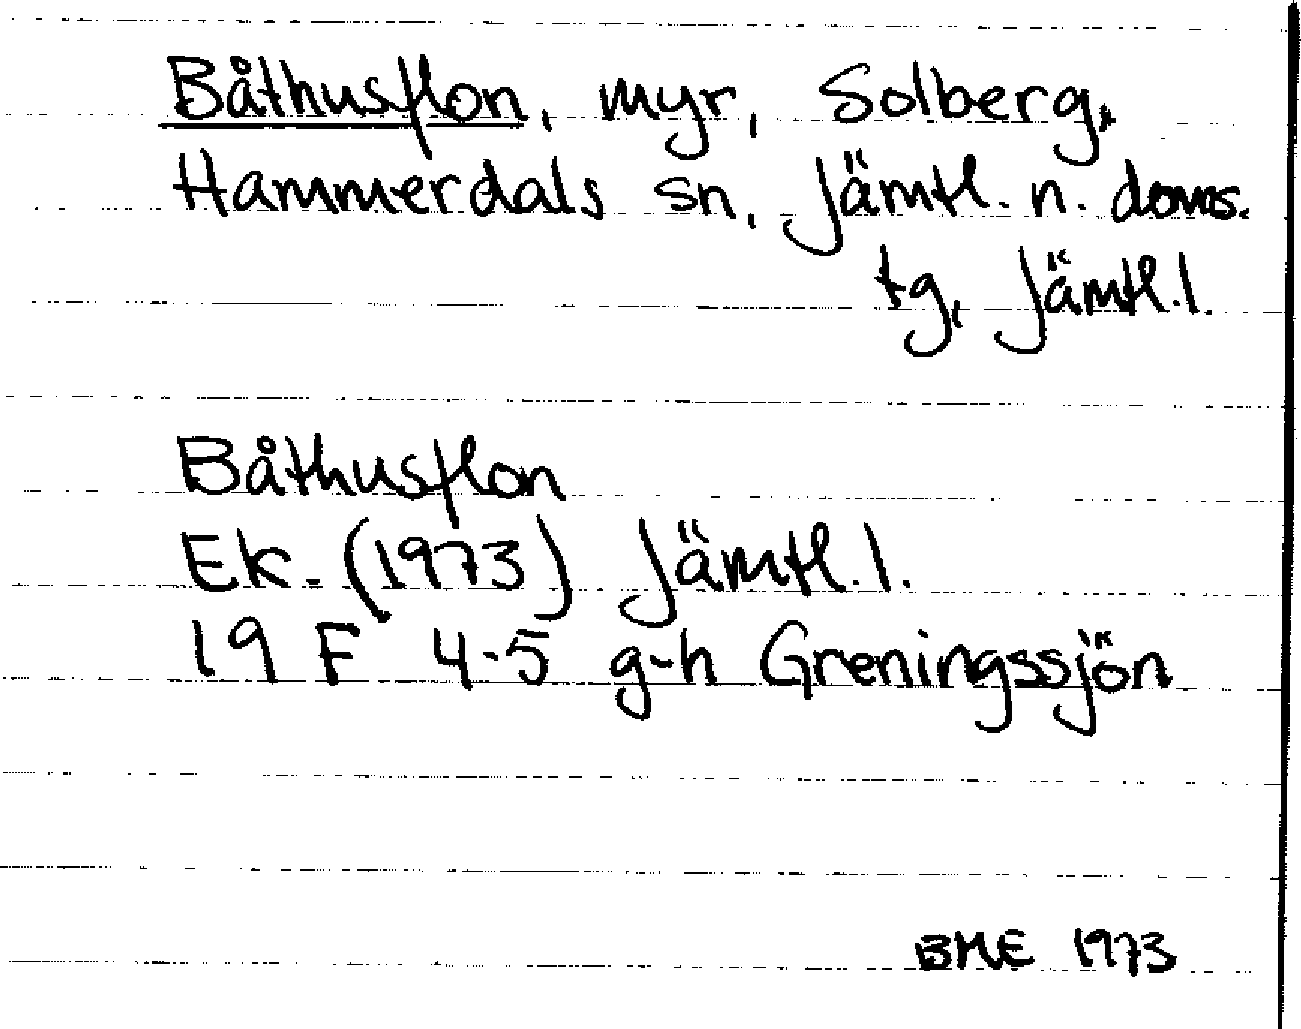 Båthusflon, myr, Solberg,
Hammerdals sn, Jämtl. n. doms.
tg, Jämtl. l.
Båthusflon
Ek. (1973) Jämtl. l.
19 F 4-5 g-h Greningssjön
BME 1973